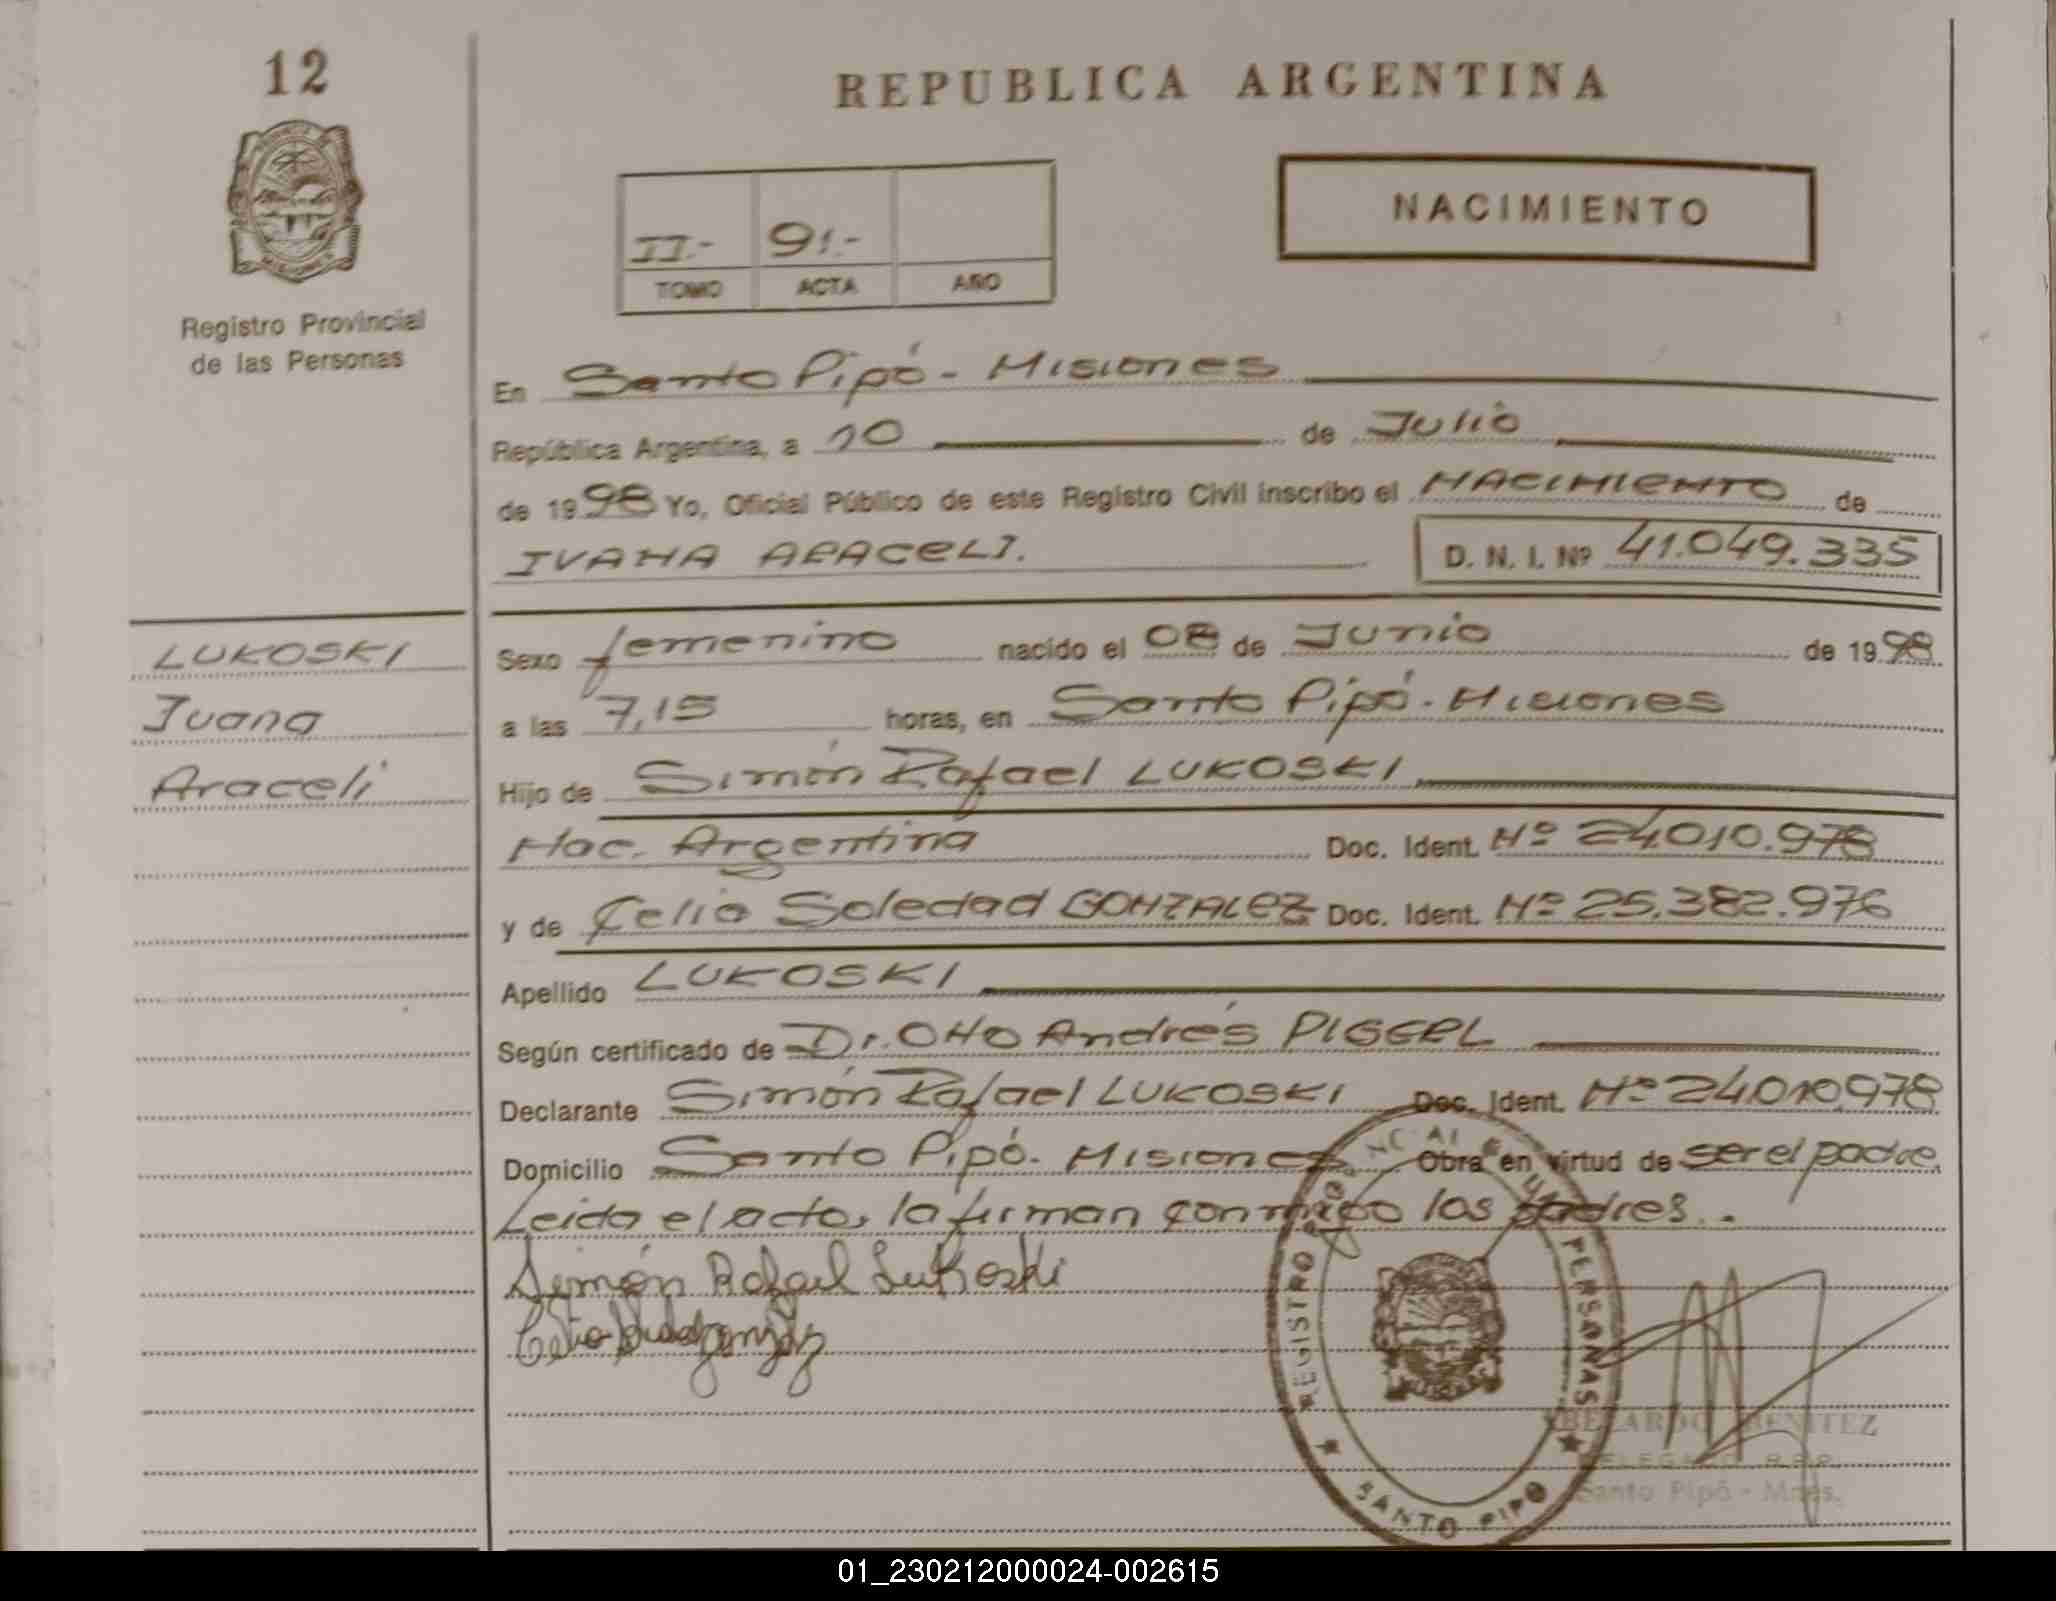 12
REPUBLICA ARGENTINA
NACIMIENTO
II.- 91.-
TOMO ACTA AÑO
Registro Provincial
de las Personas
En Santo Pipó - Misiones
República Argentina, a 10 de Julio
de 1998 Yo, Oficial Público de este Registro Civil inscribo el NACIMIENTO de
IVANA ARACELI. D. N. I. Nº 41.049.335
LUKOSKI
Ivana
Araceli
Sexo femenino nacido el 08 de Junio de 1998
a las 7,15 horas, en Santo Pipó - Misiones
Hijo de Simón Rafael LUKOSKI
Nac. Argentina Doc. Ident. Nº 24.010.978
y de Celia Soledad GONZALEZ Doc. Ident. Nº 25.382.976
Apellido LUKOSKI
Según certificado de Dr. Otto Andrés PIGERL
Declarante Simón Rafael LUKOSKI Doc. Ident. Nº 24.010.978
Domicilio Santo Pipó - Misiones Obra en virtud de ser el padre.
Leida el acta, la firman conmigo los padres.
Simón Rafael Lukoski
REGISTRO PROVINCIAL PERSONAS
SANTO PIPO
BENITEZ
Santo Pipó - Mnes.
01_230212000024-002615